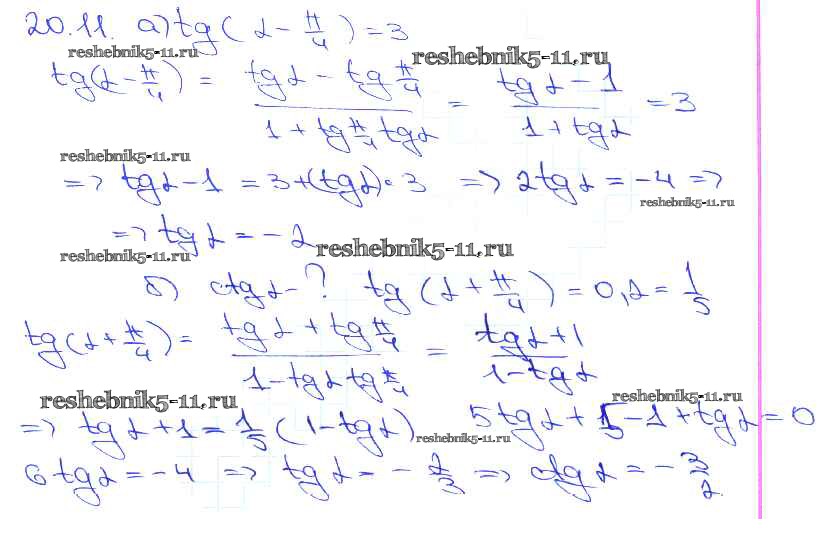 20.11. а) tg(α - π/4) = 3
reshebnik5-11.ru reshebnik5-11.ru
tg(α - π/4) = (tgα - tg π/4)/(1 + tg π/4 tgα) = (tgα - 1)/(1 + tgα) = 3
reshebnik5-11.ru
=> tgα - 1 = 3 + (tgα)·3 => 2tgα = -4 =>
reshebnik5-11.ru
=> tgα = -2
reshebnik5-11.ru reshebnik5-11.ru
б) ctgα - ? tg(α + π/4) = 0,2 = 1/5
tg(α + π/4) = (tgα + tg π/4)/(1 - tgα tg π/4) = (tgα + 1)/(1 - tgα)
reshebnik5-11.ru reshebnik5-11.ru
=> tgα + 1 = 1/5 (1 - tgα) 5tgα + 5 - 1 + tgα = 0
reshebnik5-11.ru
6tgα = -4 => tgα = -2/3 => ctgα = -3/2